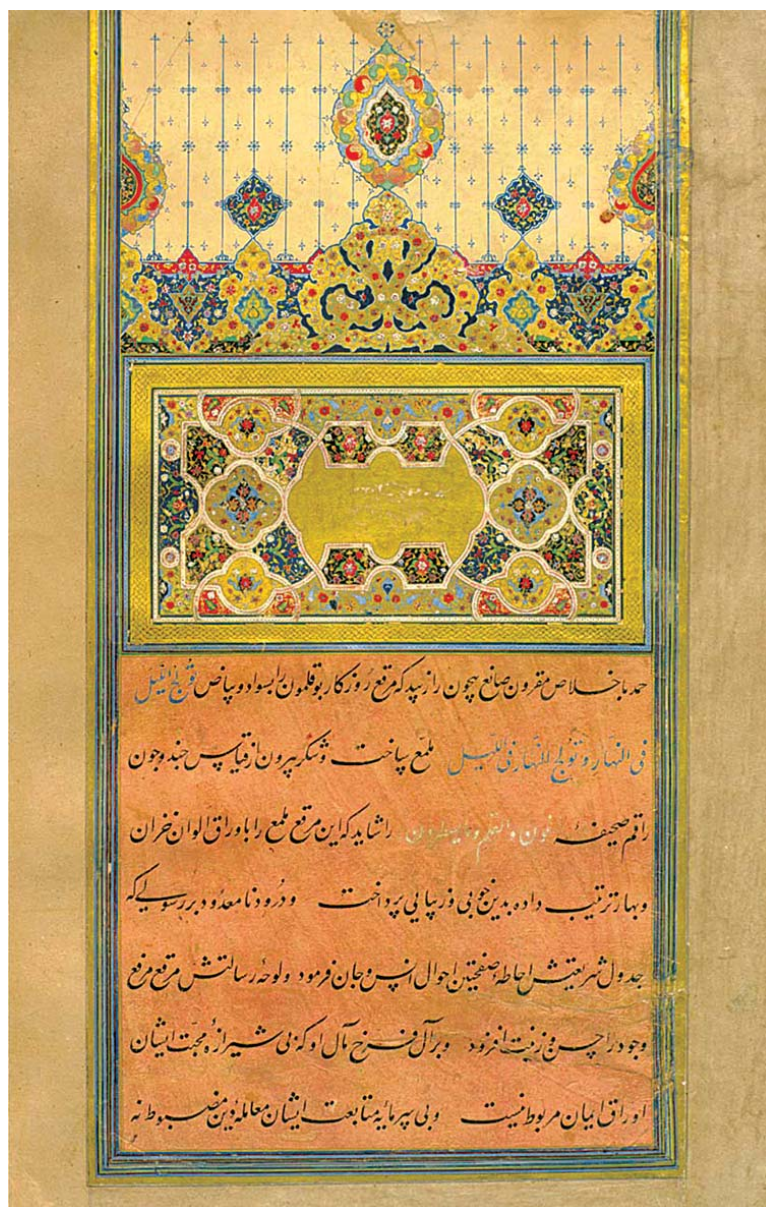 حمد با خلاص مقرون صانع بیچون را زیبد که مرقع روزکار بوقلمون را بسواد و بیاض تولج اللیل
فی النهار و تولج النهار فی اللیل ملمع ساخت و شکر بیرون از قیاس چند و چون
راقم صحیفه نون والقلم وما یسطرون را شاید که این مرقع ملمع را باوراق الوان خزان
و بهار ترتیب داده بدین خوبی و زیبایی پرداخت و درود نامعدود بر رسولی که
جدول شریعتش احاطه صفحتین احوال انس و جان فرمود و لوحه رسالتش مرقع مرفع
وجود را حسن و زینت افزود و بر آل فرخ مآل او که بی شیرازه محبت ایشان
اوراق ایمان مربوط نیست و بی سرمایه متابعت ایشان معامله دین مضبوط نه